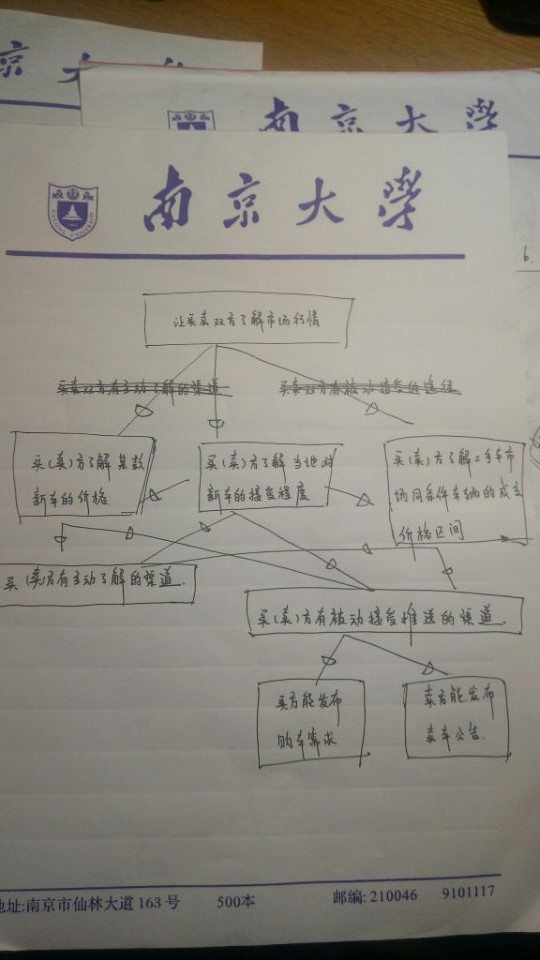 京 大
南 京 大 學
南 京 大 學
让买卖双方了解市场行情
买卖双方有主动了解的渠道
买卖双方有被动接受的途径
买(卖)方了解某款
新车的价格
买(卖)方了解当地对
新车的接受程度
买(卖)方了解二手车市
场同条件车辆的成交
价格区间
买(卖)方有主动了解的渠道.
买(卖)方有被动接受推送的渠道.
买方能发布
购车需求
卖方能发布
卖车公告.
地址:南京市仙林大道 163 号 500本 邮编: 210046 9101117